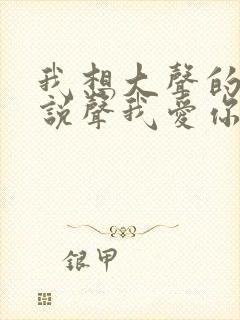 我想大聲的
說聲我愛你
銀甲